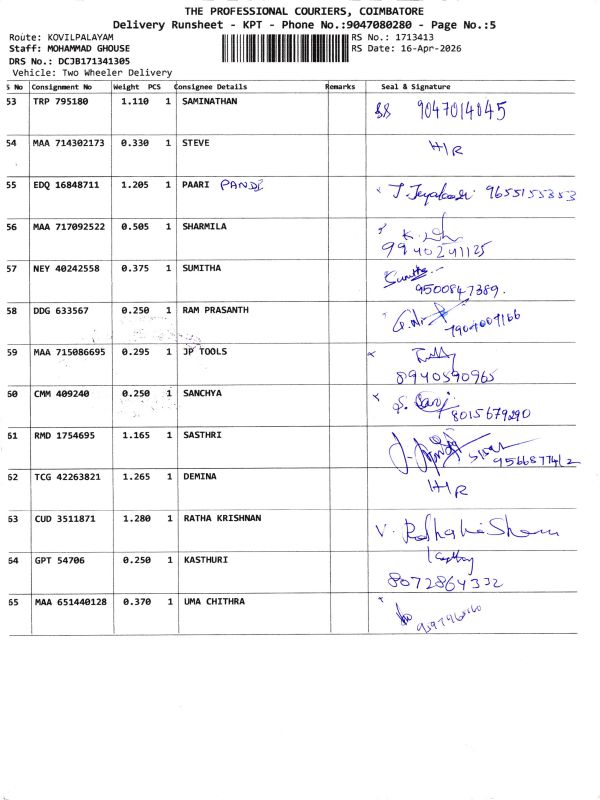 THE PROFESSIONAL COURIERS, COIMBATORE
Delivery Runsheet - KPT - Phone No.:9047080280 - Page No.:5
Route: KOVILPALAYAM RS No.: 1713413
Staff: MOHAMMAD GHOUSE RS Date: 16-Apr-2026
DRS No.: DCJB171341305
Vehicle: Two Wheeler Delivery
S No Consignment No Weight PCS Consignee Details Remarks Seal & Signature
53 TRP 795180 1.110 1 SAMINATHAN 9047014045
54 MAA 714302173 0.330 1 STEVE H/R
55 EDQ 16848711 1.205 1 PAARI PANDI 9655155353
56 MAA 717092522 0.505 1 SHARMILA
9940241125
57 NEY 40242558 0.375 1 SUMITHA Sumitha
9500847389.
58 DDG 633567 0.250 1 RAM PRASANTH
7904007166
59 MAA 715086695 0.295 1 JP TOOLS
8940590965
60 CMM 409240 0.250 1 SANCHYA
8015679290
61 RMD 1754695 1.165 1 SASTHRI
9566877412
62 TCG 42263821 1.265 1 DEMINA H/R
63 CUD 3511871 1.280 1 RATHA KRISHNAN V. Radhakrishnan
64 GPT 54706 0.250 1 KASTHURI
8072864332
65 MAA 651440128 0.370 1 UMA CHITHRA